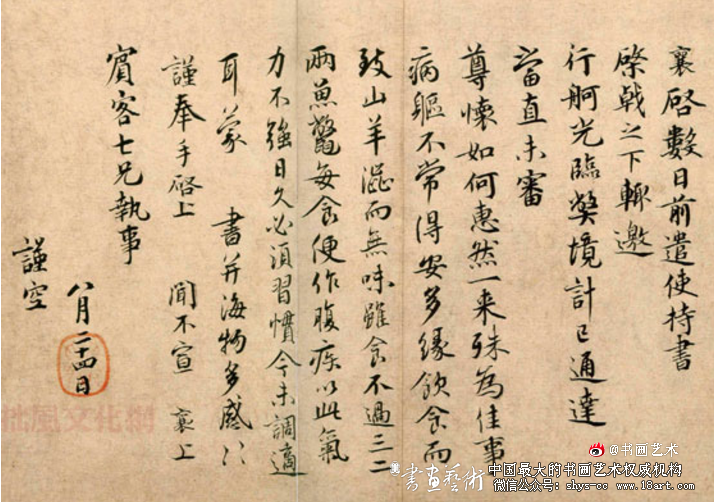 襄啓數日前遣使持書
啓戟之下輒邀
行舸光臨弊境計已通達
當直未審
尊懷如何惠然一来殊為佳事
病軀不常得安多緣飲食而
致山羊澀而無味雖食不過三二
兩魚鼈每食便作腹疾以此氣
力不強日久必須習慣今未調適
耳蒙 書并海物多感〻
謹奉手啓上 聞不宣 襄上
賓客七兄執事
八月二十四日
謹空
拙風文化網
@书画艺术
書畫藝術 中国最大的书画艺术权威机构
微信公众号: shys-cc www.18art.com